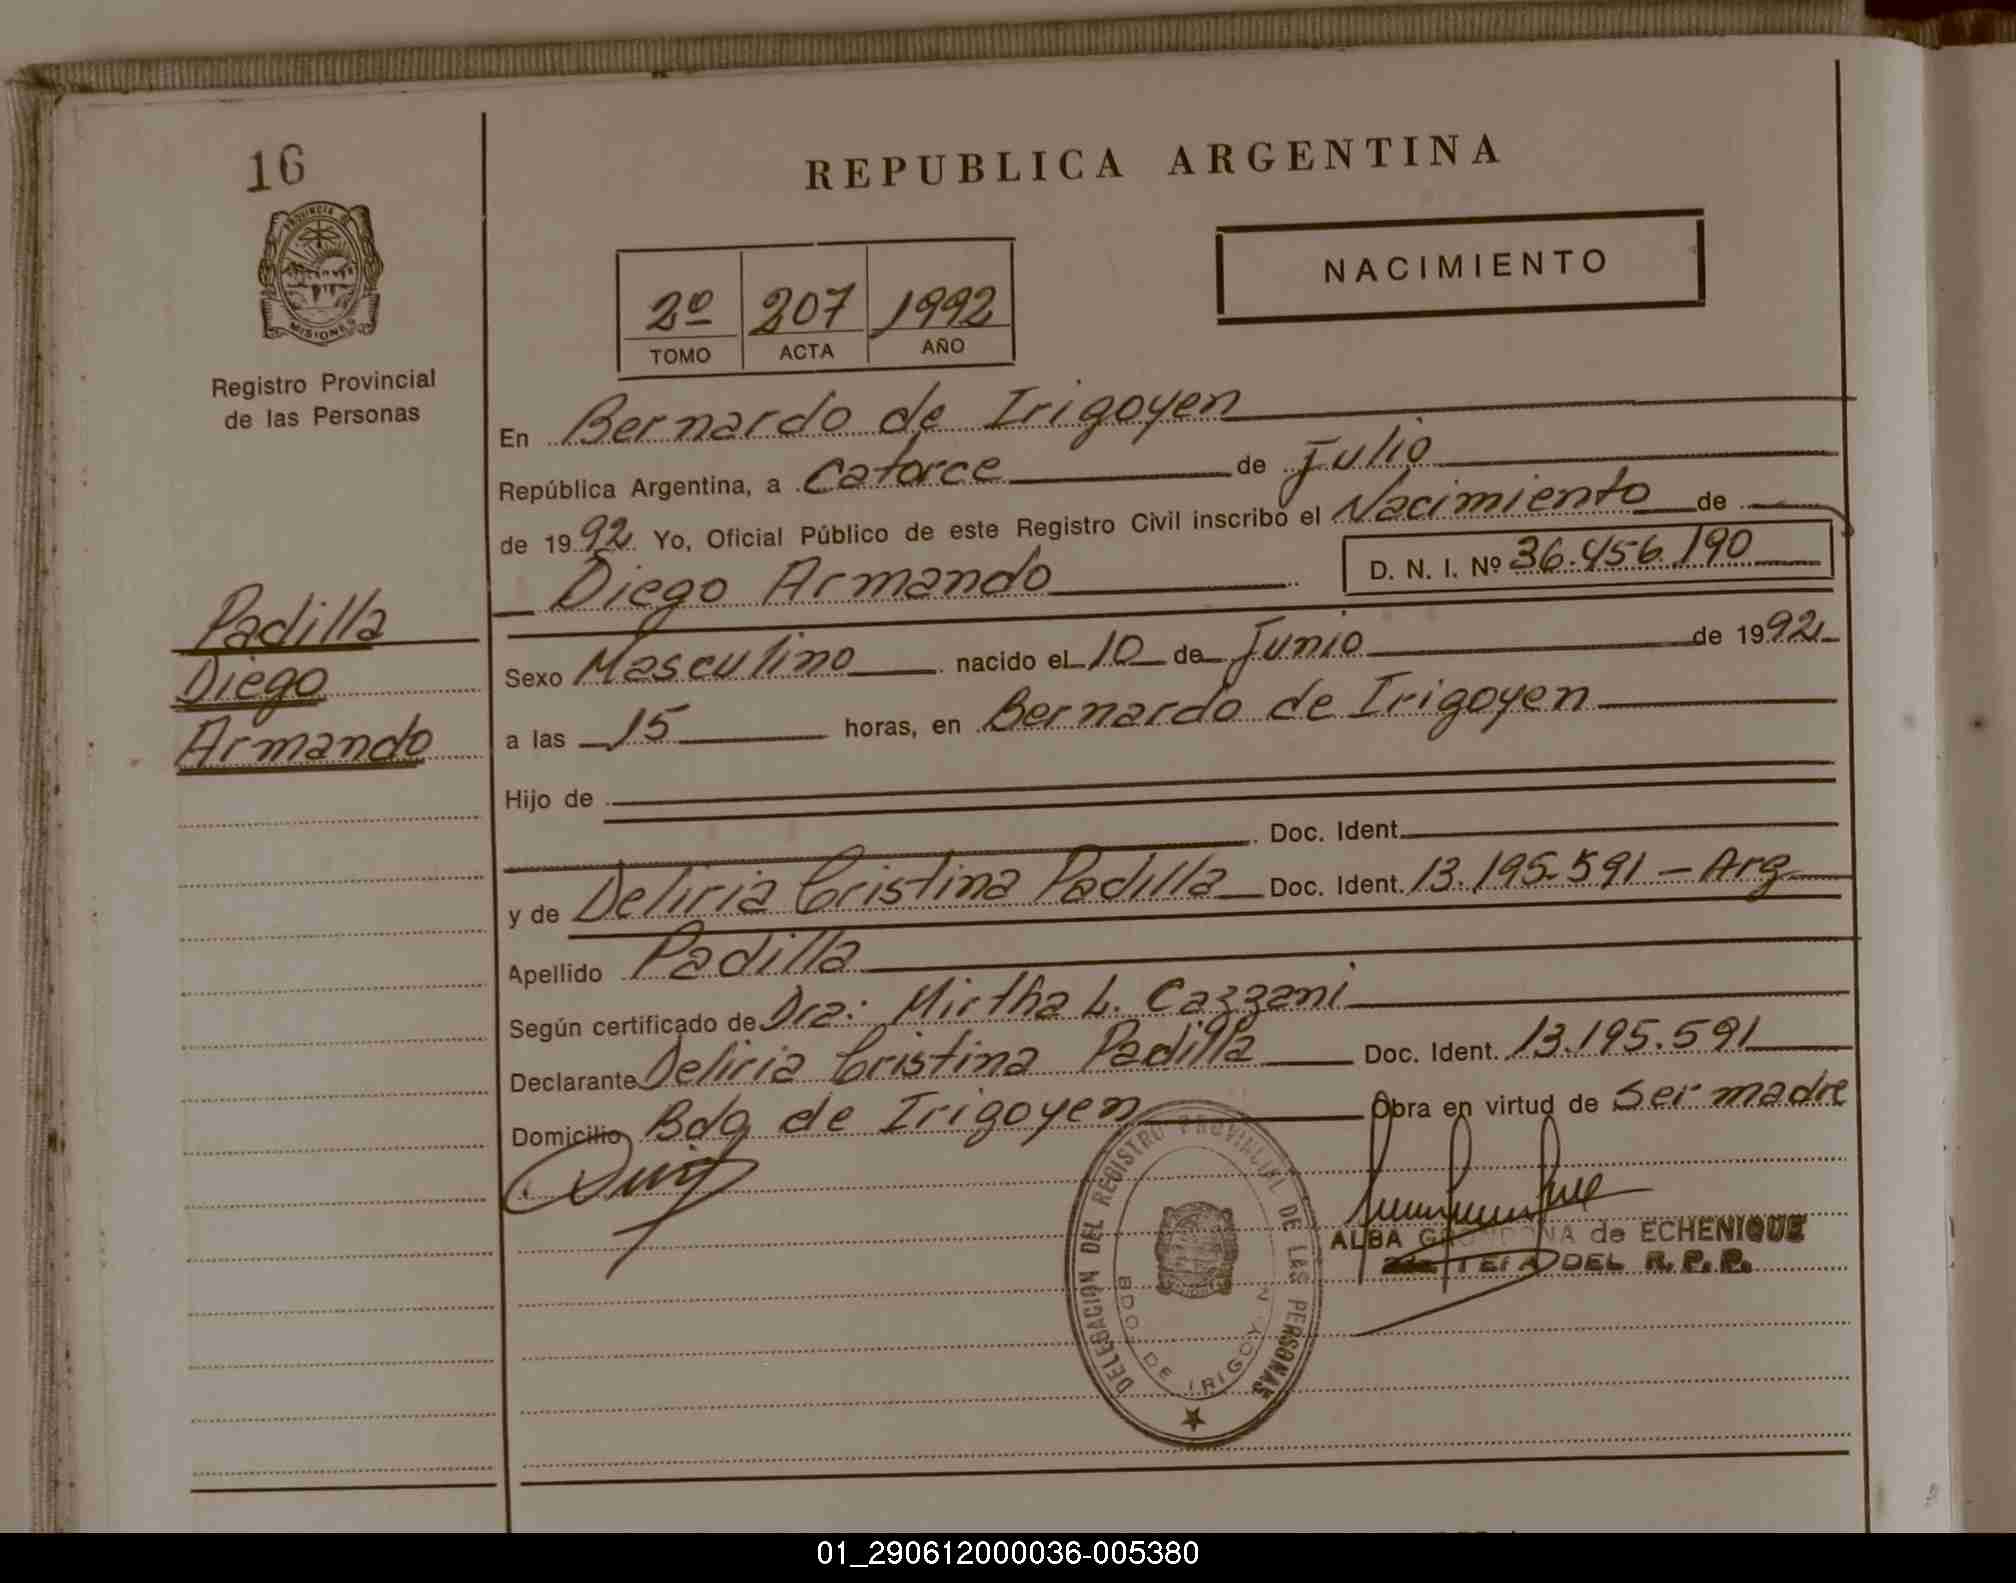 16
PROVINCIA DE
MISIONES
Registro Provincial
de las Personas
Padilla
Diego
Armando
REPUBLICA ARGENTINA
NACIMIENTO
2º 207 1992
TOMO ACTA AÑO
En Bernardo de Irigoyen
República Argentina, a Catorce de Julio
de 1992 Yo, Oficial Público de este Registro Civil inscribo el Nacimiento de
Diego Armando D. N. I. Nº 36.456.190
Sexo Masculino nacido el 10 de Junio de 1992
a las 15 horas, en Bernardo de Irigoyen
Hijo de
Doc. Ident.
y de Deliria Cristina Padilla Doc. Ident. 13.195.591 - Arg.
Apellido Padilla
Según certificado de Dra: Mirtha L. Cazzani
Declarante Deliria Cristina Padilla Doc. Ident. 13.195.591
Domicilio Bdo de Irigoyen Obra en virtud de Ser madre
DELEGACIÓN DEL REGISTRO PROVINCIAL DE LAS PERSONAS
BDO. DE IRIGOYEN
ALBA GRONDONA de ECHENIQUE
DEL R. P. P.
01_290612000036-005380